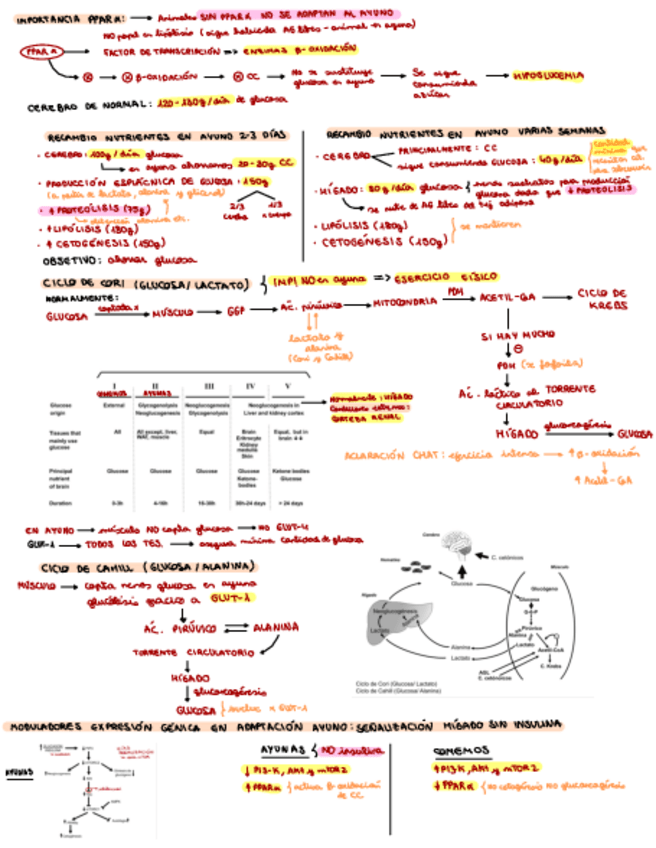 IMPORTANCIA PPARα: → Animales SIN PPARα NO SE ADAPTAN AL AYUNO
NO papel en lipólisis (sigue habiendo AG libres - animal en ayuno)
PPAR α → FACTOR DE TRANSCRIPCIÓN => ENZIMAS β-OXIDACIÓN
β-OXIDACIÓN → CC → No se sustituye glucosa en ayuno → Se sigue consumiendo → HIPOGLUCEMIA
CEREBRO DE NORMAL: 120-130g/día de glucosa
RECAMBIO NUTRIENTES EN AYUNO 2-3 DÍAS
· CEREBRO: 100g/día glucosa
en ayuno ahorramos 20-30g CC
· PRODUCCIÓN ESPLÁCNICA DE GLUCOSA: 150g
(a partir de lactato, alanina y glicerol)
2/3 1/3
· ↑ PROTEÓLISIS (75g)
· ↑ LIPÓLISIS (180g)
· ↑ CETOGÉNESIS (150g)
OBJETIVO: ahorrar glucosa
RECAMBIO NUTRIENTES EN AYUNO VARIAS SEMANAS
· CEREBRO
PRINCIPALMENTE: CC
sigue consumiendo GLUCOSA: 40g/día
· HÍGADO: 80g/día glucosa } menos sustratos para producción glucosa dado que ↓ PROTEÓLISIS
se nutre de AG libre del tej adiposo
· LIPÓLISIS (180g)
· CETOGÉNESIS (150g)
} se mantienen
CICLO DE CORI (GLUCOSA/LACTATO) { IMP! NO en ayuno => EJERCICIO FÍSICO
NORMALMENTE:
GLUCOSA → captada x → MÚSCULO → G6P → ÁC. pirúvico → MITOCONDRIA → PDH → ACETIL-CoA → CICLO DE KREBS
lactato y alanina
(Cori y Cahill)
SI HAY MUCHO
PDH (se fosforila)
Ác. láctico al TORRENTE CIRCULATORIO
HÍGADO → gluconeogénesis → GLUCOSA
ACLARACIÓN CHAT: ejercicio intenso → ↑ β-oxidación
↑ Acetil-CoA
I II III IV V
COMEMOS AYUNAS
Glucose origin External Glycogenolysis Neoglucogenesis Neoglucogenesis Glycogenolysis Neoglucogenesis in Liver and kidney cortex
Tissues that mainly use glucose All All except. liver, WAT, muscle Equal Brain Eritrocyte Kidney medulla Skin Equal, but in brain
Principal nutrient of brain Glucose Glucose Glucose Glucose Ketone-bodies Ketone bodies Glucose
Duration 0-3h 4-16h 16-30h 30h-24 days > 24 days
Normalmente: HÍGADO
Condiciones extremas: CORTEZA RENAL
EN AYUNO → músculo NO capta glucosa → NO GLUT-4
GLUT-1 → TODOS LOS TEJ. → asegura mínima cantidad de glucosa
CICLO DE CAHILL (GLUCOSA/ALANINA)
MÚSCULO → capta menos glucosa en ayuno
glucólisis gracias a GLUT-1
ÁC. PIRÚVICO ⇌ ALANINA
TORRENTE CIRCULATORIO
HÍGADO
gluconeogénesis
GLUCOSA
Cerebro
C. cetónicos
Hematíes
Glucosa
Músculo
Hígado
Neoglucogénesis
Lactato
Glucógeno
Glucosa
G-6-P
Pirúvico
Alanina
Lactato
Acetil-CoA
C. Krebs
Alanina
Lactato
AGL
C. cetónicos
Ciclo de Cori (Glucosa/ Lactato)
Ciclo de Cahill (Glucosa/ Alanina)
MODULADORES EXPRESIÓN GÉNICA EN ADAPTACIÓN AYUNO: SEÑALIZACIÓN HÍGADO SIN INSULINA
AYUNAS
AYUNAS { NO insulina
↓ PI3-K, AKt y mTOR2
↑ PPARα { activa β oxidación de CC
COMEMOS
↑ PI3K, AKt y mTOR2
↓ PPARα { no cetogénesis NO gluconeogénesis